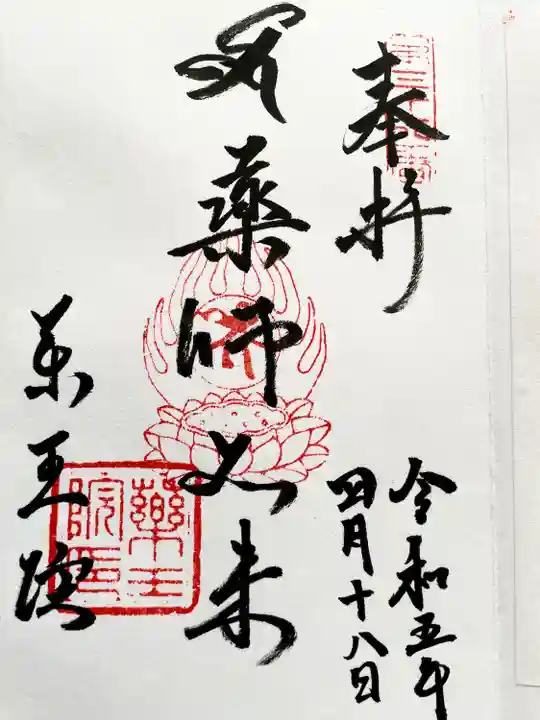 奉拝
令和五年
四月十八日
薬師如来
薬王院
薬王
院印